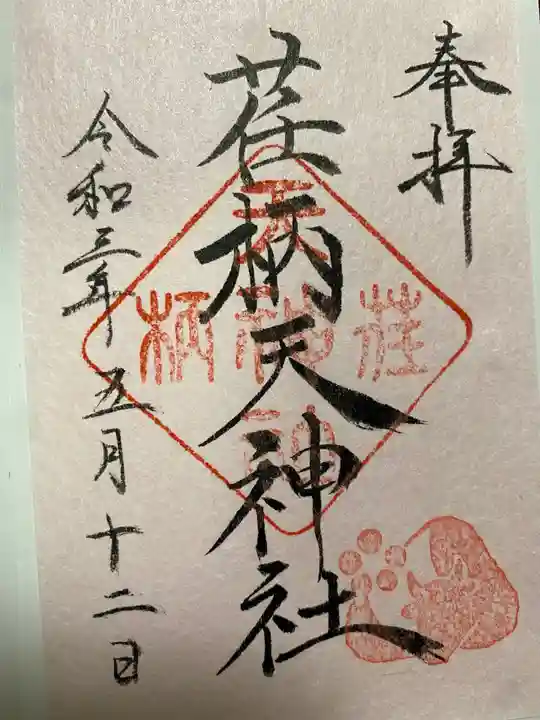 奉拝
荏柄天神社
令和三年五月十二日
荏
天神
柄